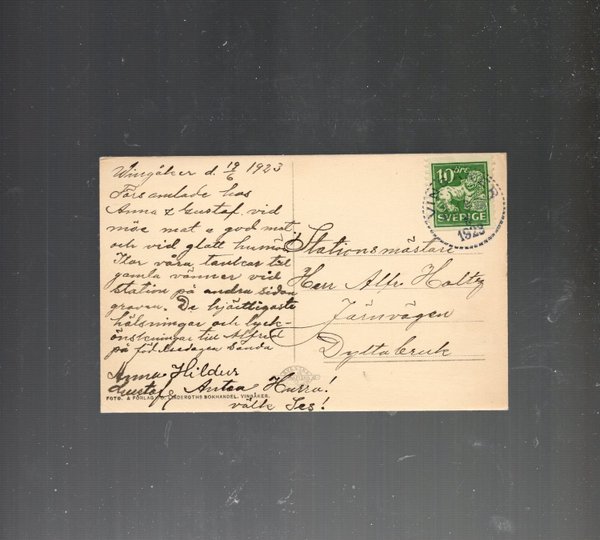 Wingåker d. 19/6 1923
Församlade hos
Anna & Gustaf vid
möe mat o god mat
och vid glatt humör
Ilar våra tankar till
gamla vänner vid
station på andra sidan
graven. De hjärtligaste
hälsningar och lyck-
önskningar till Alfred
på födelsedagen sända
Anna Hildur
Gustaf Anton Hurra!
välk Ses!
FOTO. & FÖRLAG LINDEROTHS BOKHANDEL, VINGÅKER.
10 ÖRE
SVERIGE
1923
Stationsmästare
Herr Alfr. Holtz
Järnvägen